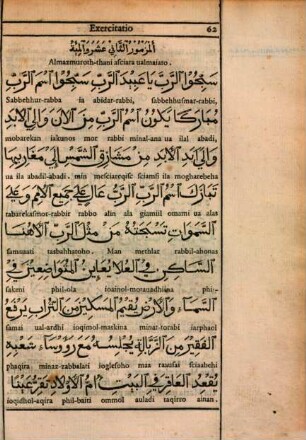 Exercitatio 62
المزمور الثاني عشر والمية
Almazmuroth-thani aſciara ualmaiato.
سبحوا الرب يا عبيد الرب سبحوا اسم الرب
Sabbehhur-rabba ia abidar-rabbi, ſabbehhuſmar-rabbi,
مباركا يكون اسم الرب من الان والي الابد
mobarekan iakunos mor rabbi minal-ana ua ilal abadi,
والي ابد الابد من مشارق الشمس الي مغاربها
ua ila abadil-abadi, min meſciareqiſc ſciamſi ila mogharebeha
تبارك اسم الرب الرب عال علي جميع الامم وعلي
tabarekaſmor-rabbir rabbo alin ala giamiil omami ua alas
السموات تسبحته من مثل الرب الاهنا
ſamauati taſbahhatoho. Man methlar rabbil-ahona
الساكن في العلا يعاين المتواضعين في
ſakeni phil-ola ioainol-motauadhiina phi-
السماء والارض يقيم المسكين من التراب يرفع
samai ual-ardhi ioqimol-maskina minat-torabi iarphaol
الفقير من الزبالة يجلسه مع رووساء شعبه
phaqira minaz-zabbalati iogleſoho maa rauaſai ſciaabehi
يقعد العاقر في البيت ام الاولاد تقر عينا
ioqidhul-aqira phil-baiti ommol auladi taqirro ainan.